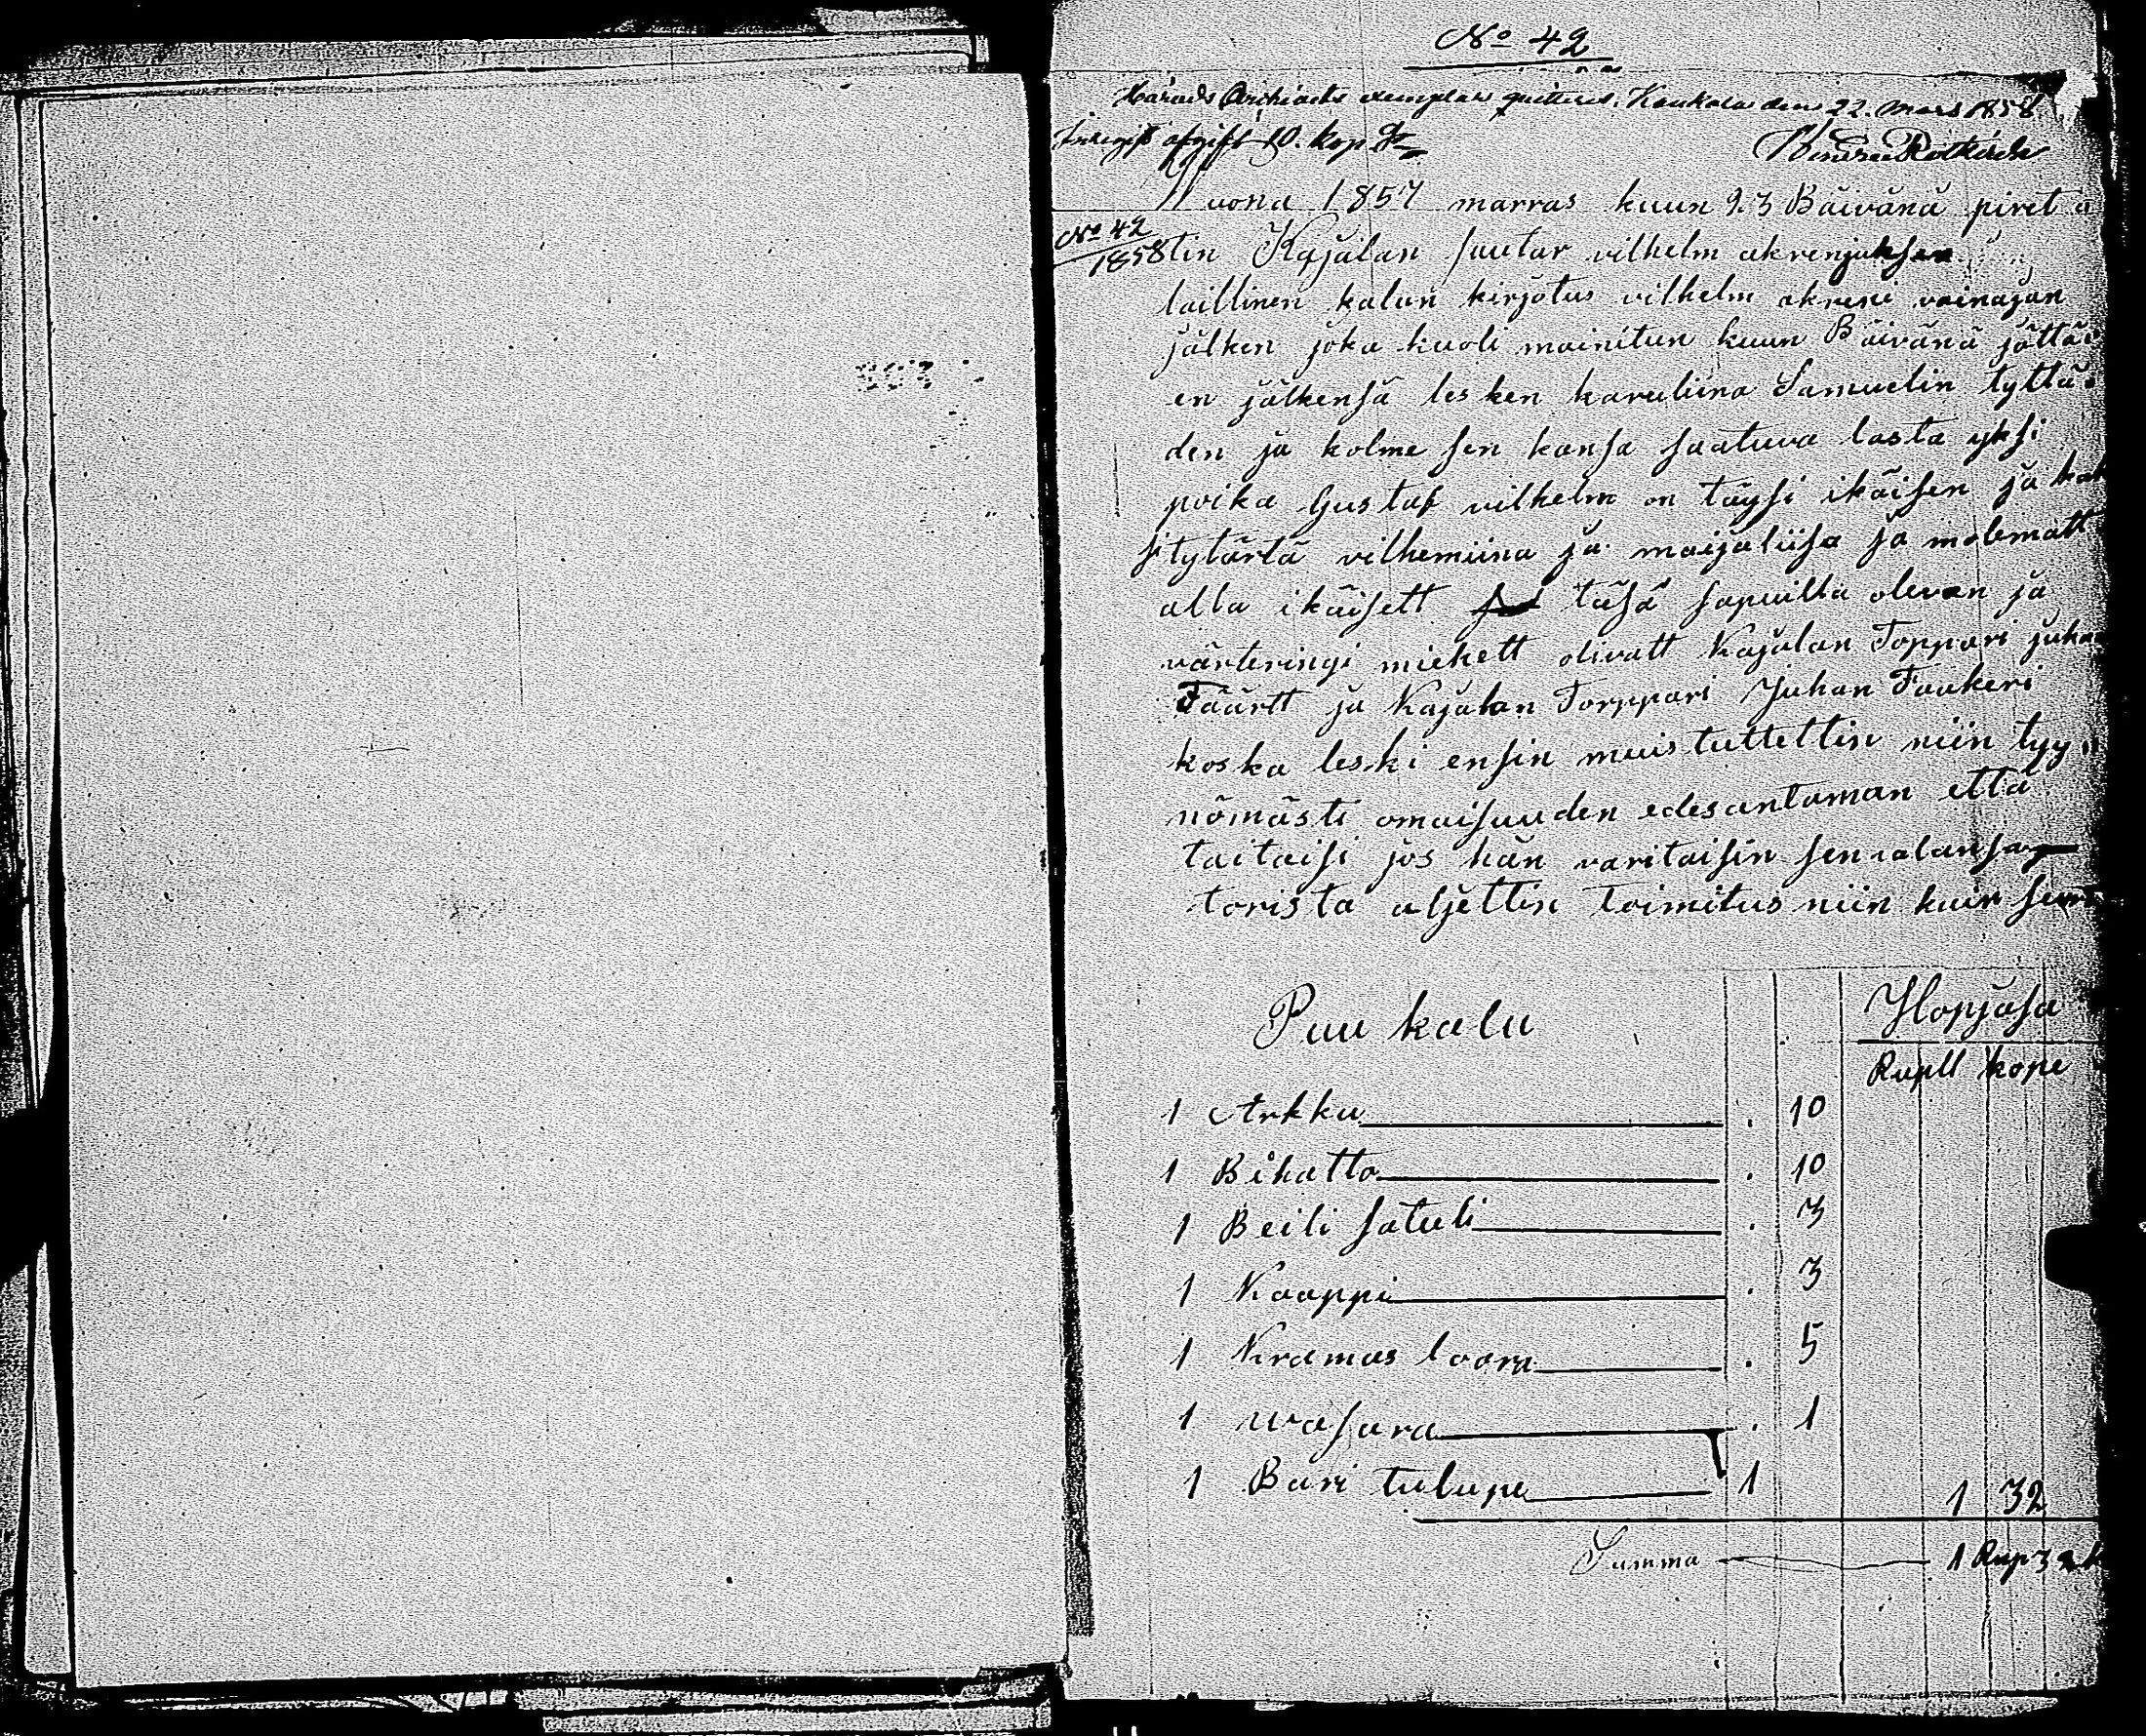 No 42
Härads Archivets exemplar quitteras. Kaukola den 22. Mars 1858.
afgift 10. kop. Sr
Vuona 1857 marras kuun 23 Bäivänä piret
No 42
1858
tin Kajalan suutar vilhelm akrenjuksen
laillinen kalun kirjotus vilhelm akreni vainajan
jälken joka kuoli mainitun kuun Bäivänä jättä
en jälkensä lesken karuliina Samuelin tyttä
den ja kolme sen kansa saatuva lasta yksi
poika Gustaf vilhelm on täysi ikäisen ja kak
si tytärtä vilhemiina ja maijaliisa ja molematt
alla ikäisett täsä sapuilla olevan ja
värteringi miehett olivatt Kajalan Toppari juhan
Täärtt ja Kajalan Torppari Juhan Faukeri
koska leski ensin muistuttettin niin tyy
nömästi omaisuuden edesantaman että
taitaisi jos hän varitaisin sen valansa
torista aljettin toimitus niin kuin seura
Puu kalu
Hopjasa
Rupll kope
1 Arkku . 10
1 Bihatto . 10
1 Beili satuli . 3
1 Kaappi . 3
1 Kramas loora . 5
1 wasara . 1
1 Bari tulupe 1 1 32
Summa 1 Rup 32 k